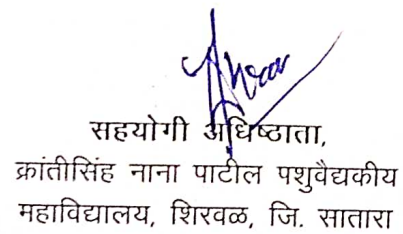 सहयोगी अधिष्ठाता,
क्रांतीसिंह नाना पाटील पशुवैद्यकीय
महाविद्यालय, शिरवळ, जि. सातारा